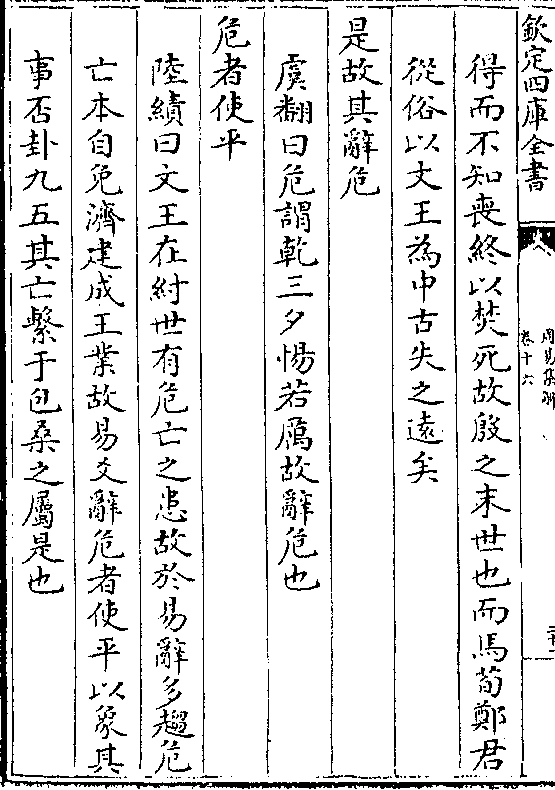 欽定四庫全書
周易集解
卷十六
得而不知喪終以焚死故殷之末世也而馬荀鄭君
從俗以文王為中古失之遠矣
是故其辭危
虞翻曰危謂乾三夕惕若厲故辭危也
危者使平
陸績曰文王在紂世有危亡之患故於易辭多趨危
亡本自免濟建成王業故易爻辭危者使平以象其
事否卦九五其亡繫于包桑之屬是也